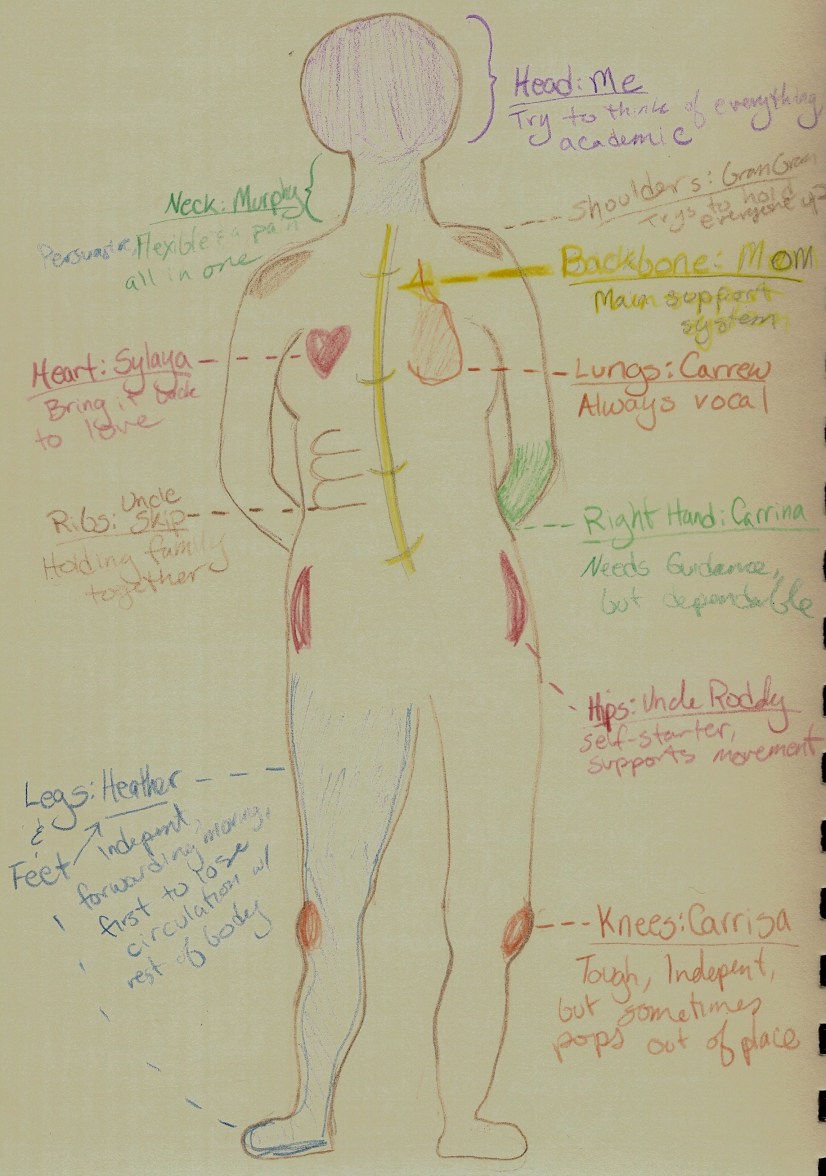 Head: Me
Try to think of everything,
academic
Neck: Murphy
Persuasive, flexible & a pain
all in one
Shoulders: GranGran
Trys to hold
everyone up
Backbone: Mom
Main support
system
Heart: Sylaya
Bring it back
to love
Lungs: Carrew
Always vocal
Ribs: Uncle
Skip
Holding family
together
Right Hand: Carrina
Needs Guidance,
but dependable
Hips: Uncle Roddy
self-starter,
supports movement
Legs: Heather
&
Feet
Indepent,
forwarding moving,
first to lose
circulation w/
rest of body
Knees: Carrisa
Tough, Indepent,
but sometimes
pops out of place